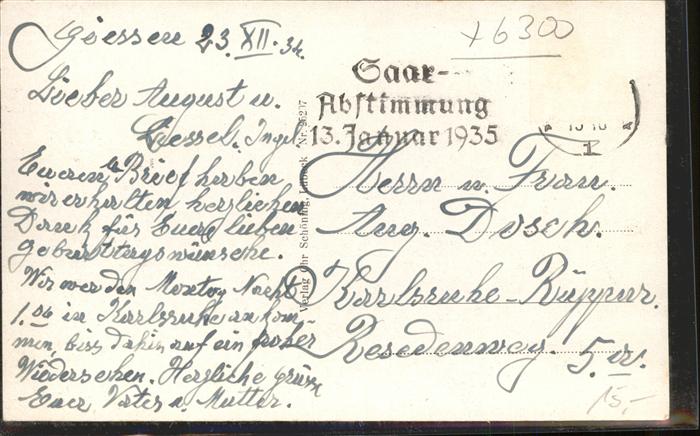 Giessen 23. XII. 34.
x 6300
Saar-
Abstimmung
13. Januar 1935
1
Lieber August u.
Liessel, Ingel.
Eueren lb Brief haben
wir erhalten herzlichen
Dank für Euere lieben
Geburtstagswünsche.
Wir werden Montag Nacht
1.06 in Karlsruhe ankom-
men, biss dahin auf ein froher
Wiedersehen. Herzliche grüsse
Euer Vater u. Mutter.
Verlag Chr Schöning, Lübeck Nr.
Herrn u. Frau.
Aug. Dosch.
Karlsruhe-Rüppur.
Resedenweg. 5. IV.
15,-